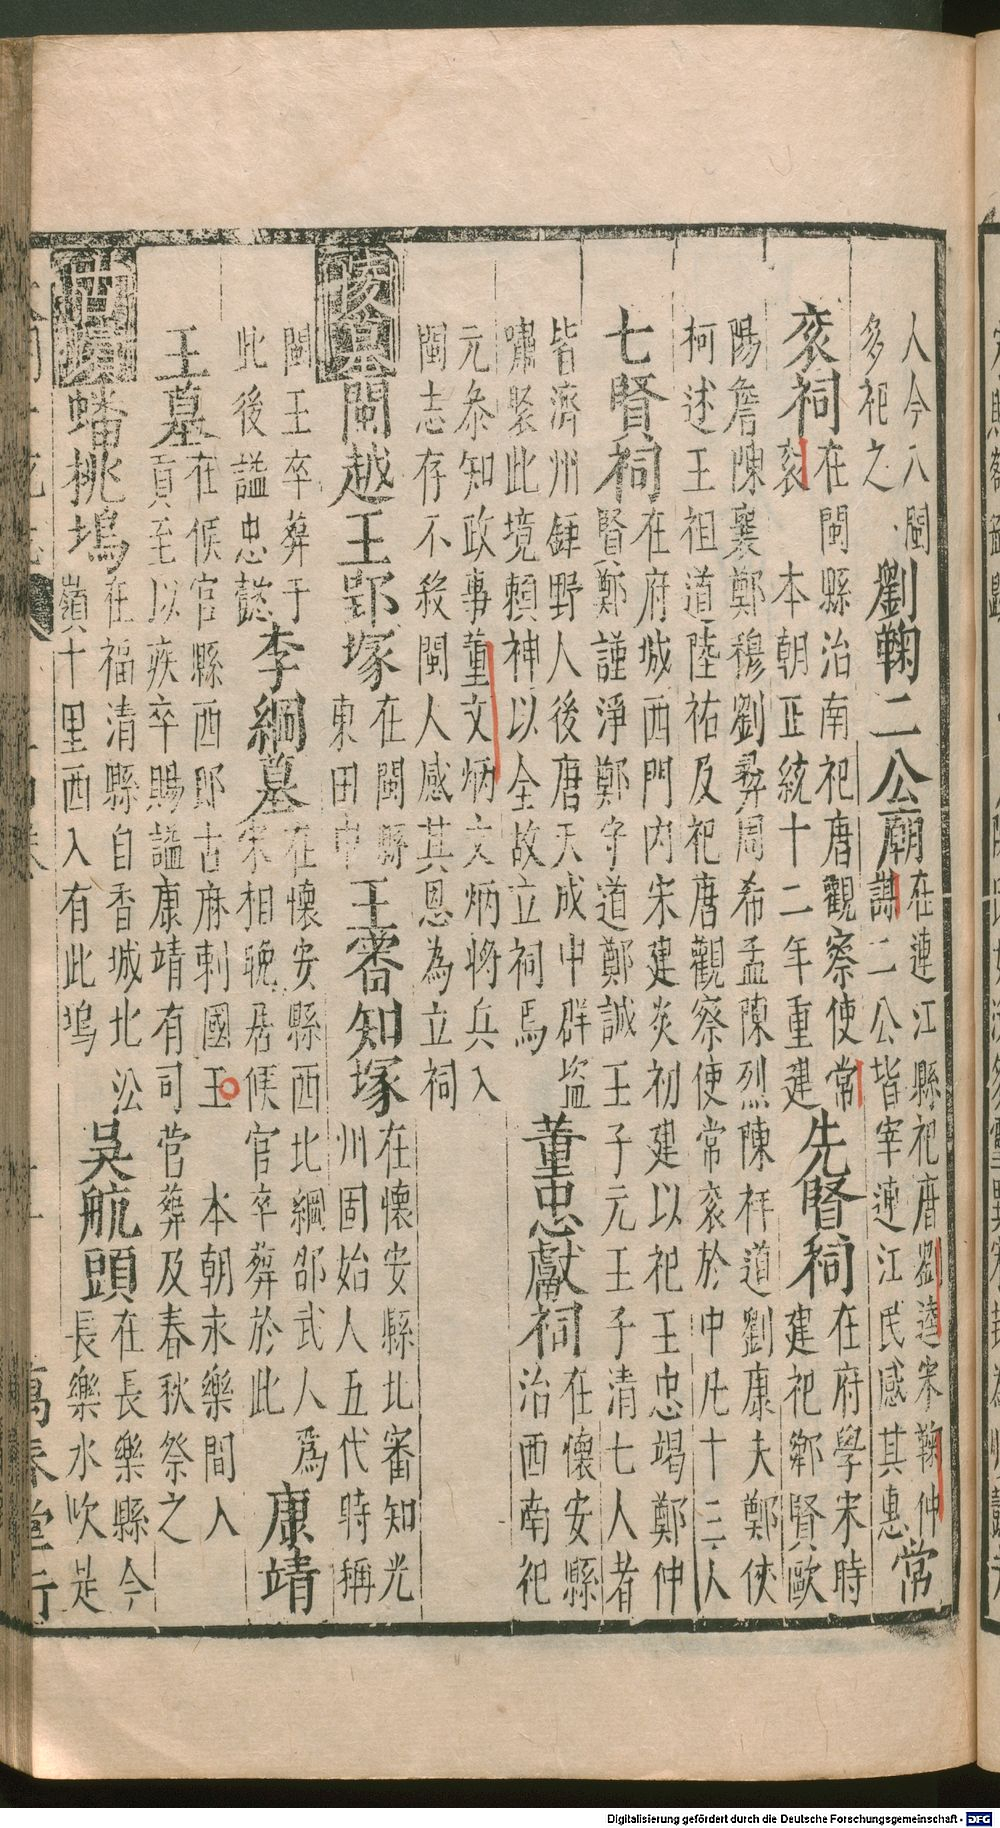 人今八閩
多祀之
劉鞠二公廟
在連江縣祀唐劉逵宋鞠仲
謀二公皆宰連江民感其惠
常
衮祠
在閩縣治南祀唐觀察使常
衮 本朝正統十二年重建
先賢祠
在府學宋時
建祀鄉賢歐
陽詹陳襄鄭穆劉彝周希孟陳烈陳祥道劉康夫鄭俠
柯述王祖道陸祐及祀唐觀察使常衮於中凡十三人
七賢祠
在府城西門內宋建炎初建以祀王忠竭鄭仲
賢鄭謹淨鄭守道鄭誠王子元王子清七人者
皆濟州鉅野人後唐天成中群盜
嘯聚此境賴神以全故立祠焉
董忠獻祠
在懷安縣
治西南祀
元叅知政事董文炳文炳將兵入
閩志存不殺閩人感其恩為立祠
陵墓
閩越王郢塚
在閩縣
東田中
王審知塚
在懷安縣北審知光
州固始人五代時稱
閩王卒葬于
此後謚忠懿
李綱墓
在懷安縣西北綱邵武人爲
宋相晚居候官卒葬於此
康靖
王墓
在候官縣西郎古麻剌國王 本朝永樂間入
貢至以疾卒賜謚康靖有司営葬及春秋祭之
古蹟
蟠桃塢
在福清縣自香城北㳂
嶺十里西入有此塢
吳航頭
在長樂縣今
長樂水次是
萬春堂行
Digitalisierung gefördert durch die Deutsche Forschungsgemeinschaft - DFG